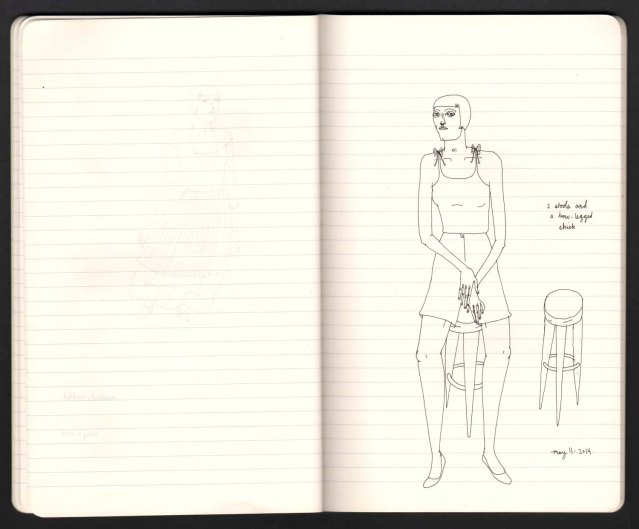 2 stools and
a bow-legged
chick
may 11 - 2014